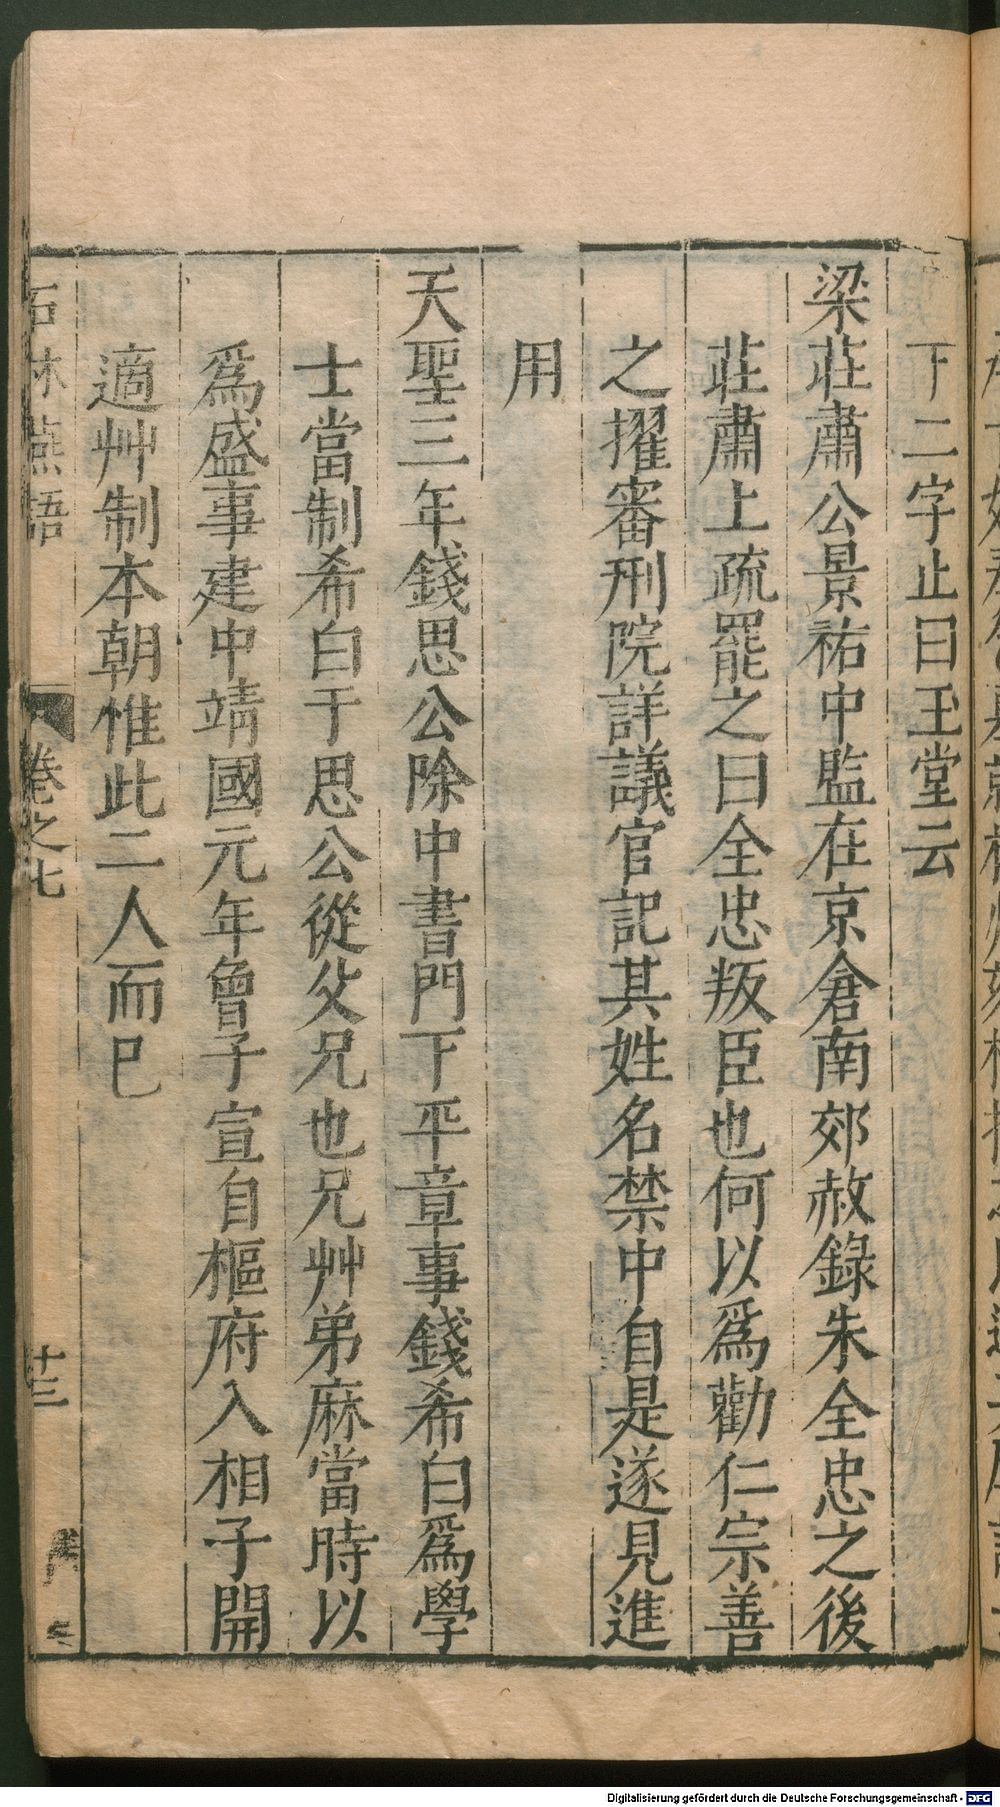 下二字止曰玉堂云
梁莊肅公景祐中監在京倉南郊赦錄朱全忠之後
莊肅上疏罷之曰全忠叛臣也何以爲勸仁宗善
之擢審刑院詳議官記其姓名禁中自是遂見進
用
天聖三年錢思公除中書門下平章事錢希白爲學
士當制希白于思公從父兄也兄艸弟麻當時以
爲盛事建中靖國元年曾子宣自樞府入相子開
適艸制本朝惟此二人而已
石林燕語
卷之七
十三
Digitalisierung gefördert durch die Deutsche Forschungsgemeinschaft - DFG